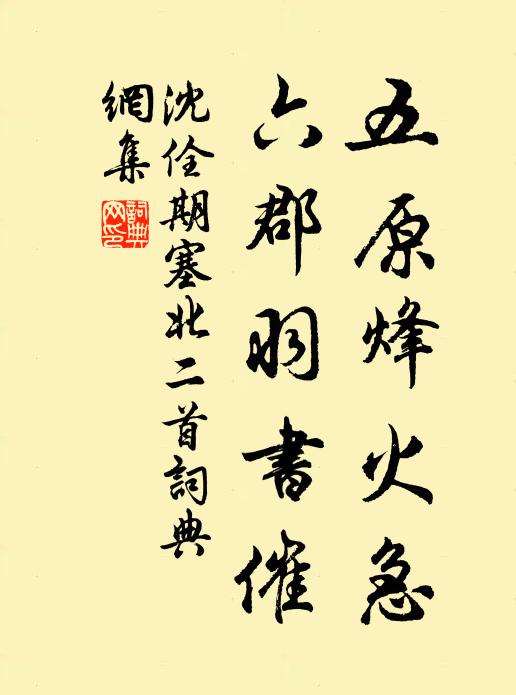 五原烽火急
六郡羽書催
沈佺期塞北二首詞典
網集
詞典
網印